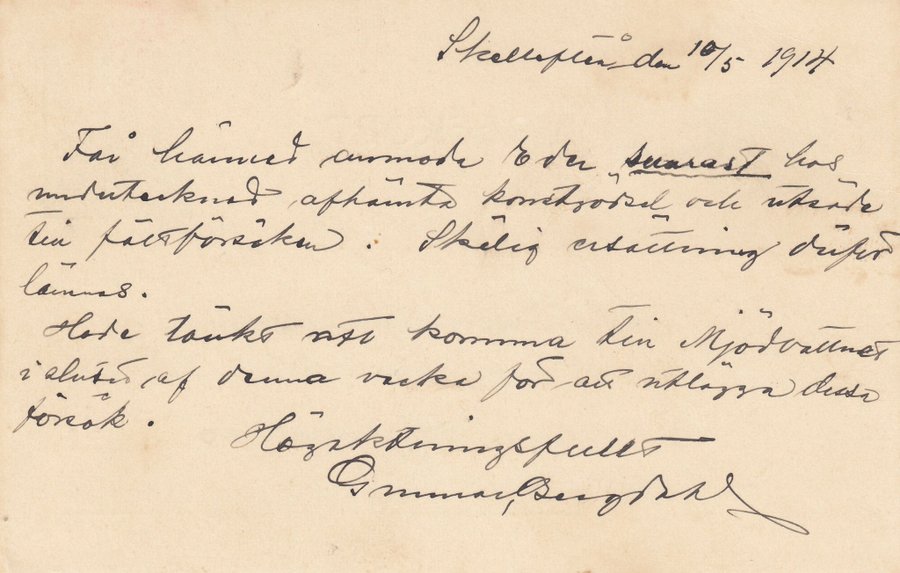 Skellefteå den 10/5 1914
Får härmed anmoda Eder snarast hos
undertecknad afhämta konstgödsel och utsäde
till fältförsöken. Skälig ersättning därför
lämnas.
Hade tänkt att komma till Mjödvattnet
i slutet af denna vecka för att utlägga dessa
försök.
Högaktningsfullt
Gunnar Bergdahl